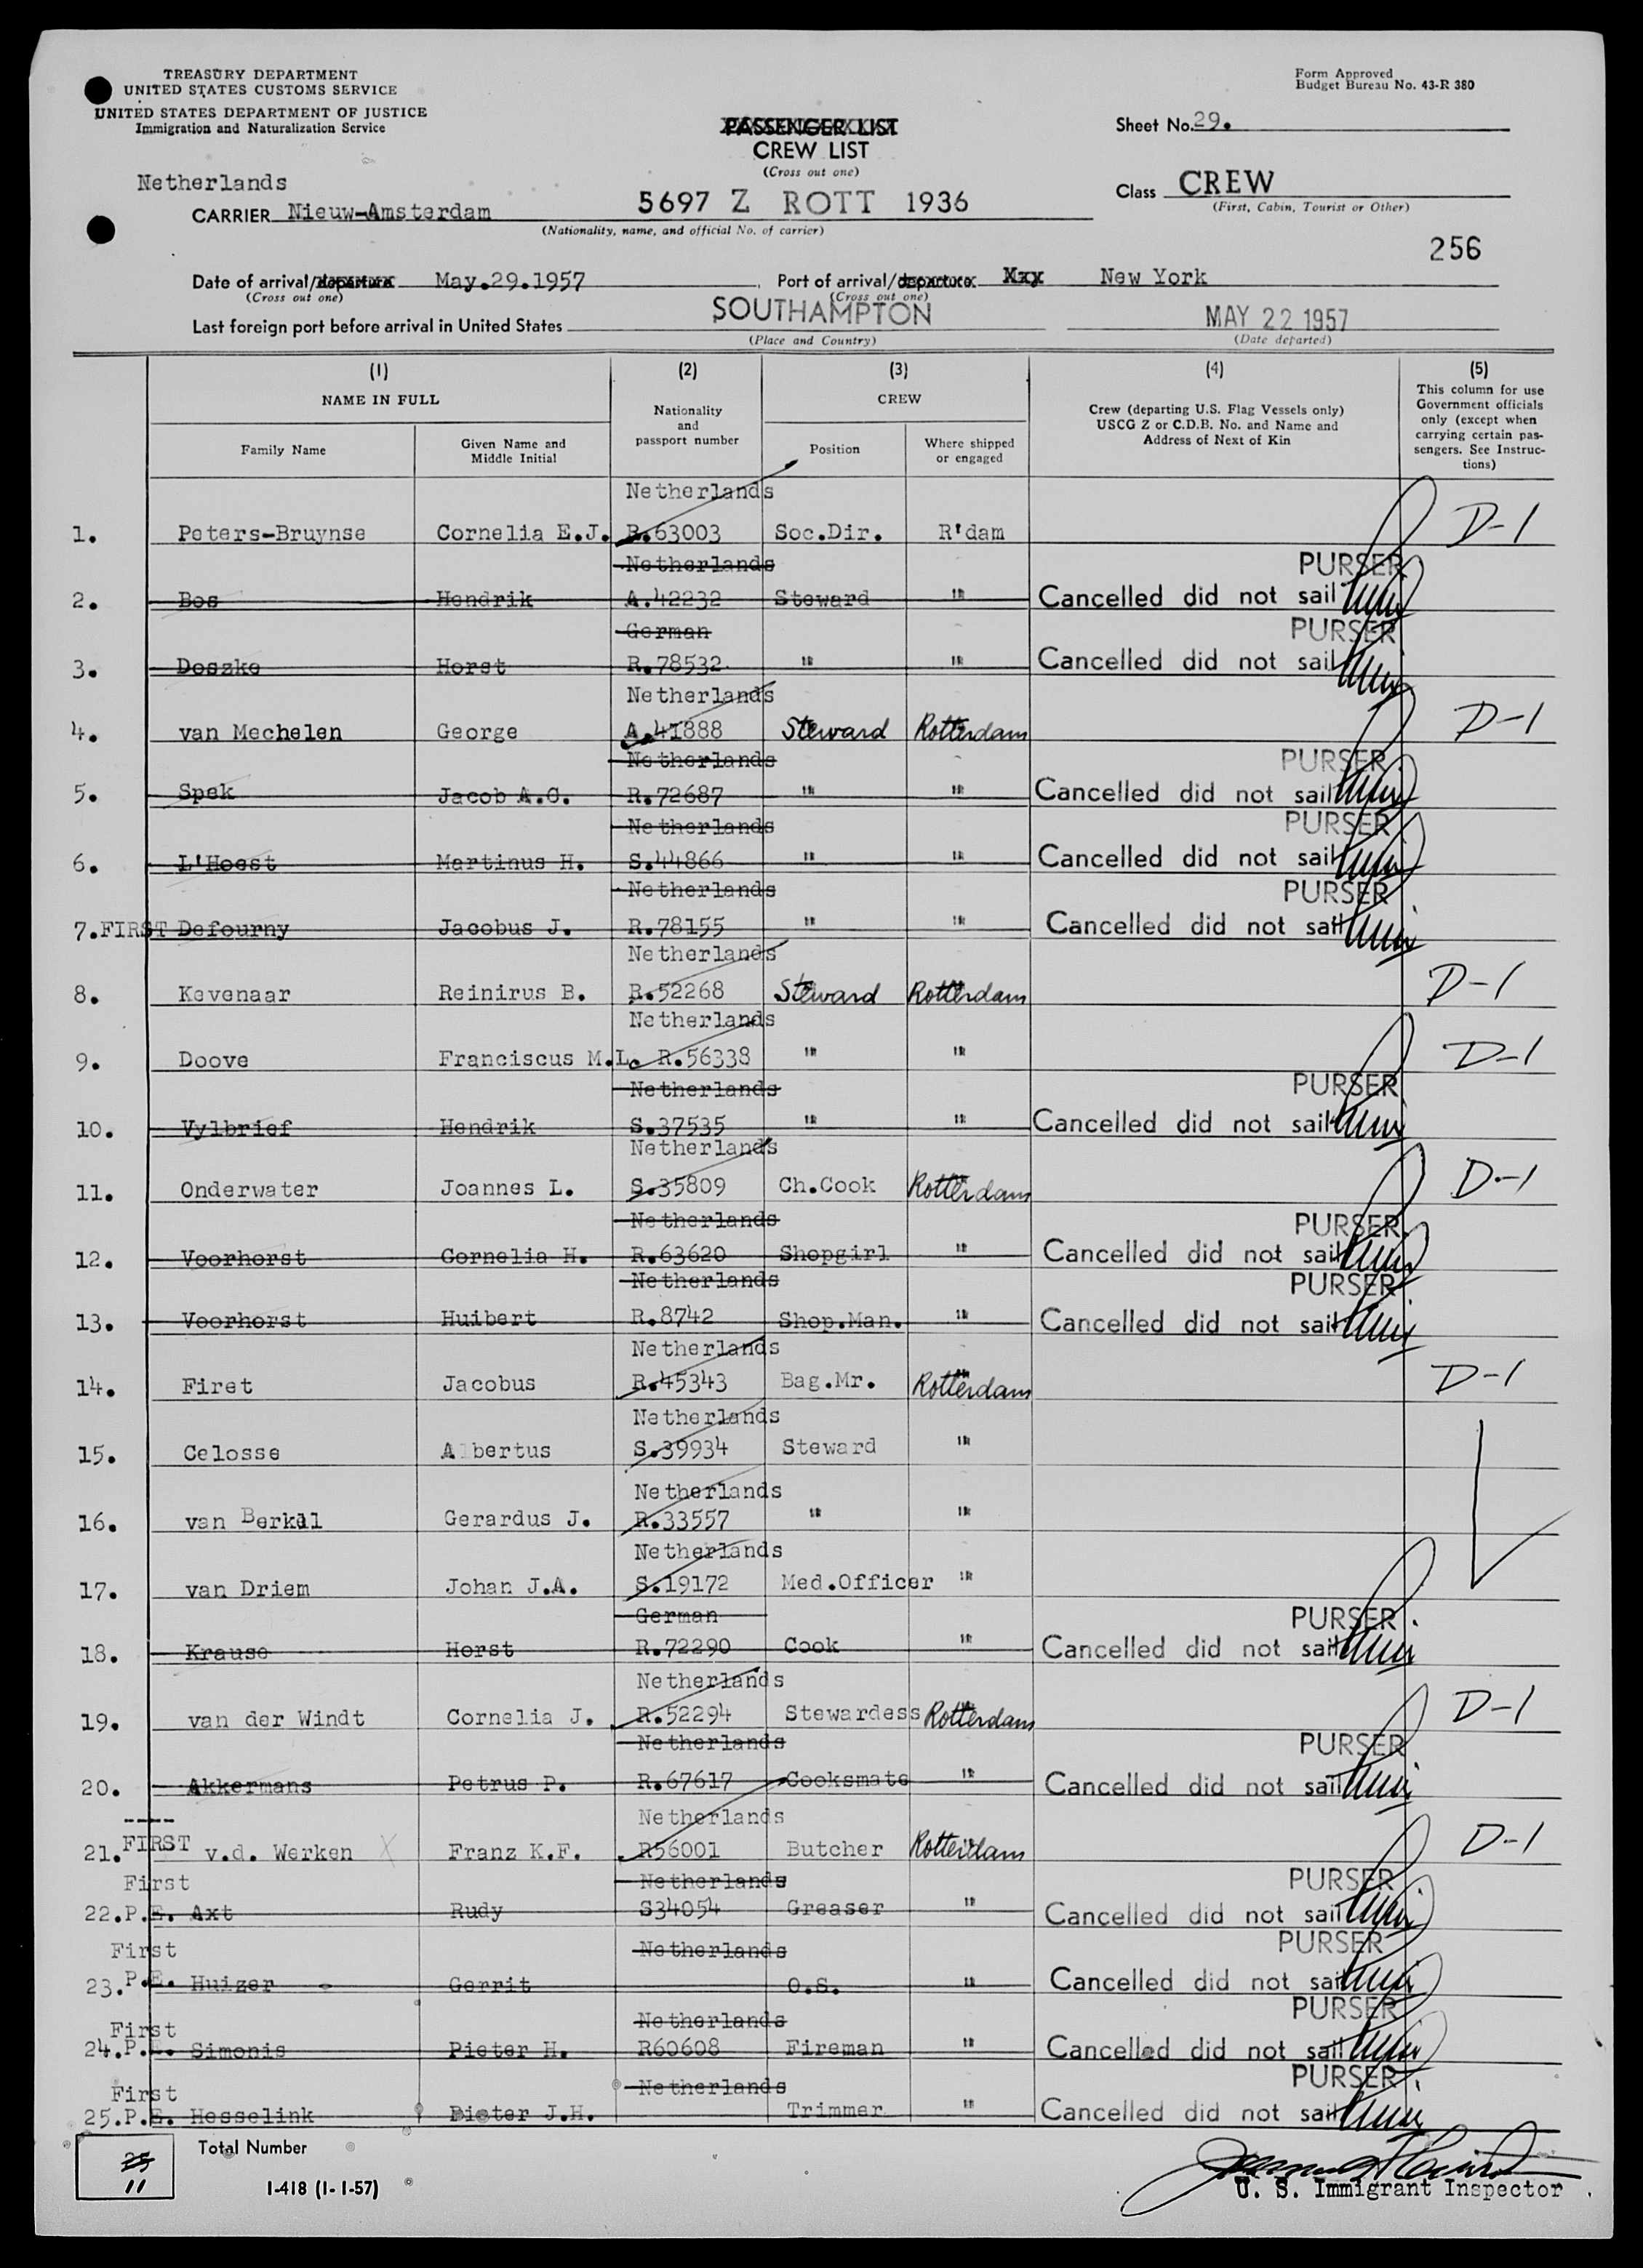 TREASURY DEPARTMENT
UNITED STATES CUSTOMS SERVICE
UNITED STATES DEPARTMENT OF JUSTICE
Immigration and Naturalization Service
Form Approved
Budget Bureau No. 43-R 380
PASSENGER LIST
CREW LIST
(Cross out one)
Sheet No. 29.
Netherlands
CARRIER Nieuw-Amsterdam 5697 Z ROTT 1936
(Nationality, name, and official No. of carrier)
Class CREW
(First, Cabin, Tourist or Other)
256
Date of arrival/departure May.29.1957 Port of arrival/departure Xxx New York
(Cross out one) (Cross out one)
Last foreign port before arrival in United States SOUTHAMPTON MAY 22 1957
(Place and Country) (Date departed)
(1) (2) (3) (4) (5)
NAME IN FULL
Family Name
Given Name and Middle Initial
Nationality and passport number
CREW
Position
Where shipped or engaged
Crew (departing U.S. Flag Vessels only)
USCG Z or C.D.B. No. and Name and
Address of Next of Kin
This column for use
Government officials
only (except when
carrying certain pas-
sengers. See Instruc-
tions)
Netherlands
1. Peters-Bruynse Cornelia E.J. R.63003 Soc.Dir. R'dam D-1
Netherlands PURSER
2. Bos Hendrik A.42232 Steward " Cancelled did not sail
German PURSER
3. Doszke Horst R.78532 " " Cancelled did not sail
Netherlands
4. van Mechelen George A.41888 Steward Rotterdam D-1
Netherlands PURSER
5. Spek Jacob A.C. R.72687 " " Cancelled did not sail
Netherlands PURSER
6. L'Hoest Martinus H. S.44866 " " Cancelled did not sail
Netherlands PURSER
7. FIRST Defourny Jacobus J. R.78155 " " Cancelled did not sail
Netherlands
8. Kevenaar Reinirus B. R.52268 Steward Rotterdam D-1
Netherlands
9. Doove Franciscus M.L. R.56338 " " D-1
Netherlands PURSER
10. Vylbrief Hendrik S.37535 " " Cancelled did not sail
Netherlands
11. Onderwater Joannes L. S.35809 Ch.Cook Rotterdam D-1
Netherlands PURSER
12. Voorhorst Cornelia H. R.63620 Shopgirl " Cancelled did not sail
Netherlands PURSER
13. Voorhorst Huibert R.8742 Shop.Man. " Cancelled did not sail
Netherlands
14. Firet Jacobus R.45343 Bag.Mr. Rotterdam D-1
Netherlands
15. Celosse Albertus S.39934 Steward "
Netherlands
16. van Berkel Gerardus J. R.33557 " "
Netherlands
17. van Driem Johan J.A. S.19172 Med.Officer "
German PURSER
18. Krause Horst R.72290 Cook " Cancelled did not sail
Netherlands
19. van der Windt Cornelia J. R.52294 Stewardess Rotterdam D-1
Netherlands PURSER
20. Akkermans Petrus P. R.67617 Cooksmate " Cancelled did not sail
Netherlands
21. FIRST v.d. Werken X Franz K.F. R56001 Butcher Rotterdam D-1
First Netherlands PURSER
22. P.E. Axt Rudy S34054 Greaser " Cancelled did not sail
First Netherlands PURSER
23. P.E. Huizer Gerrit O.S. " Cancelled did not sail
First Netherlands PURSER
24. P.E. Simonis Pieter H. R60608 Fireman " Cancelled did not sail
First Netherlands PURSER
25. P.E. Hesselink Pieter J.H. Trimmer " Cancelled did not sail
25
11
Total Number
I-418 (1-1-57)
U. S. Immigrant Inspector